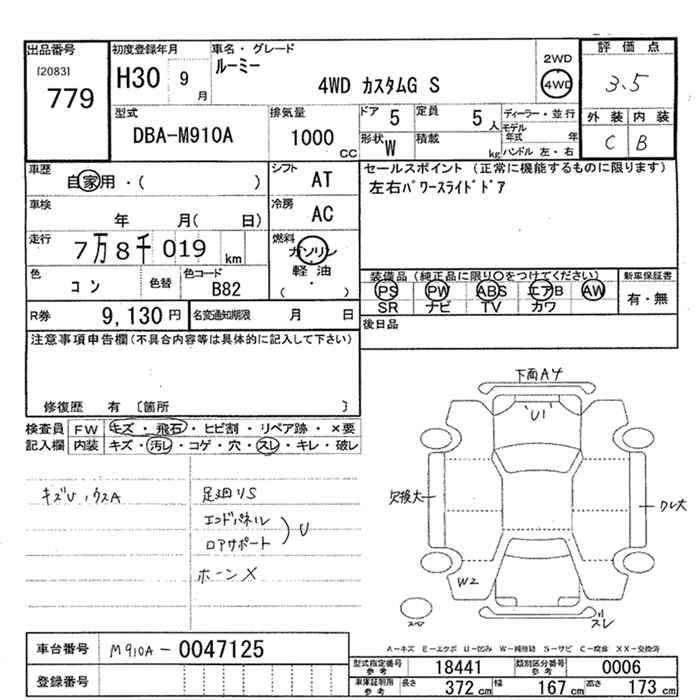 出品番号
[2083]
779
初度登録年月
H30 9月
車名・グレード
ルーミー
4WD カスタムG S
2WD
4WD
評価点
3.5
外装 内装
C B
型式
DBA-M910A
排気量
1000 CC
ドア 5
定員 5人
形状 W
積載 kg
ディーラー・並行
モデル年式 年
ハンドル 左・右
車歴
自家用・( )
シフト AT
車検
年 月( 日)
冷房 AC
走行
7万8千019 km
燃料
ガソリン
軽油
( ・ )
色
コン
色替
色コード
B82
R券 9,130円
名変通知期限 月 日
セールスポイント (正常に機能するものに限ります)
左右パワースライドドア
装備品 (純正品に限り○をつけてください)
PS PW ABS エアB AW
SR ナビ TV カワ
新車保証書
有・無
後日品
注意事項申告欄(不具合内容等は具体的に記入して下さい)
修復歴 有 [箇所 ]
検査員記入欄
FW キズ・飛石・ヒビ割・リペア跡・×要
内装 キズ・汚レ・コゲ・穴・スレ・キレ・破レ
足廻りS
ロアサポート
U
ホーンX
下廻A4
U1
クレ大
W2
スレ
A-キズ E-エクボ U-凹み W-補修跡 S-サビ C-腐食 XX-交換済
車台番号
M910A-0047125
登録番号
型式指定番号参考 18441
類別区分番号参考 0006
車庫証明用参考 長さ 372cm 幅 167cm 高さ 173cm